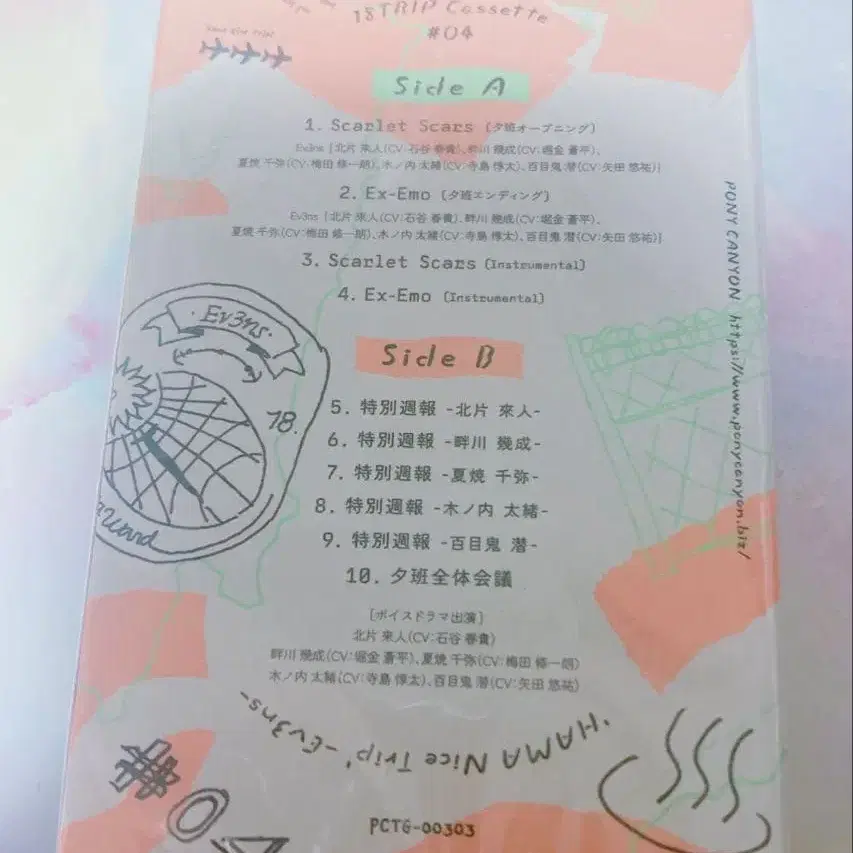 18TRIP Cassette
#04
Side A
1. Scarlet Scars (夕班オープニング)
Ev3ns [北片 來人(CV:石谷 春貴)、畔川 幾成(CV:堀金 蒼平)、
夏焼 千弥(CV:梅田 修一朗)、木ノ内 太緒(CV:寺島 惇太)、百目鬼 潜(CV:矢田 悠祐)]
2. Ex-Emo (夕班エンディング)
Ev3ns [北片 來人(CV:石谷 春貴)、畔川 幾成(CV:堀金 蒼平)、
夏焼 千弥(CV:梅田 修一朗)、木ノ内 太緒(CV:寺島 惇太)、百目鬼 潜(CV:矢田 悠祐)]
3. Scarlet Scars (Instrumental)
4. Ex-Emo (Instrumental)
Side B
5. 特別週報 -北片 來人-
6. 特別週報 -畔川 幾成-
7. 特別週報 -夏焼 千弥-
8. 特別週報 -木ノ内 太緒-
9. 特別週報 -百目鬼 潜-
10. 夕班全体会議
[ボイスドラマ出演]
北片 來人(CV:石谷 春貴)
畔川 幾成(CV:堀金 蒼平)、夏焼 千弥(CV:梅田 修一朗)
木ノ内 太緒(CV:寺島 惇太)、百目鬼 潜(CV:矢田 悠祐)
'HAMA Nice Trip' -Ev3ns-
PCTG-00303
PONY CANYON https://www.ponycanyon.biz/
·Ev3ns·
18.
#04